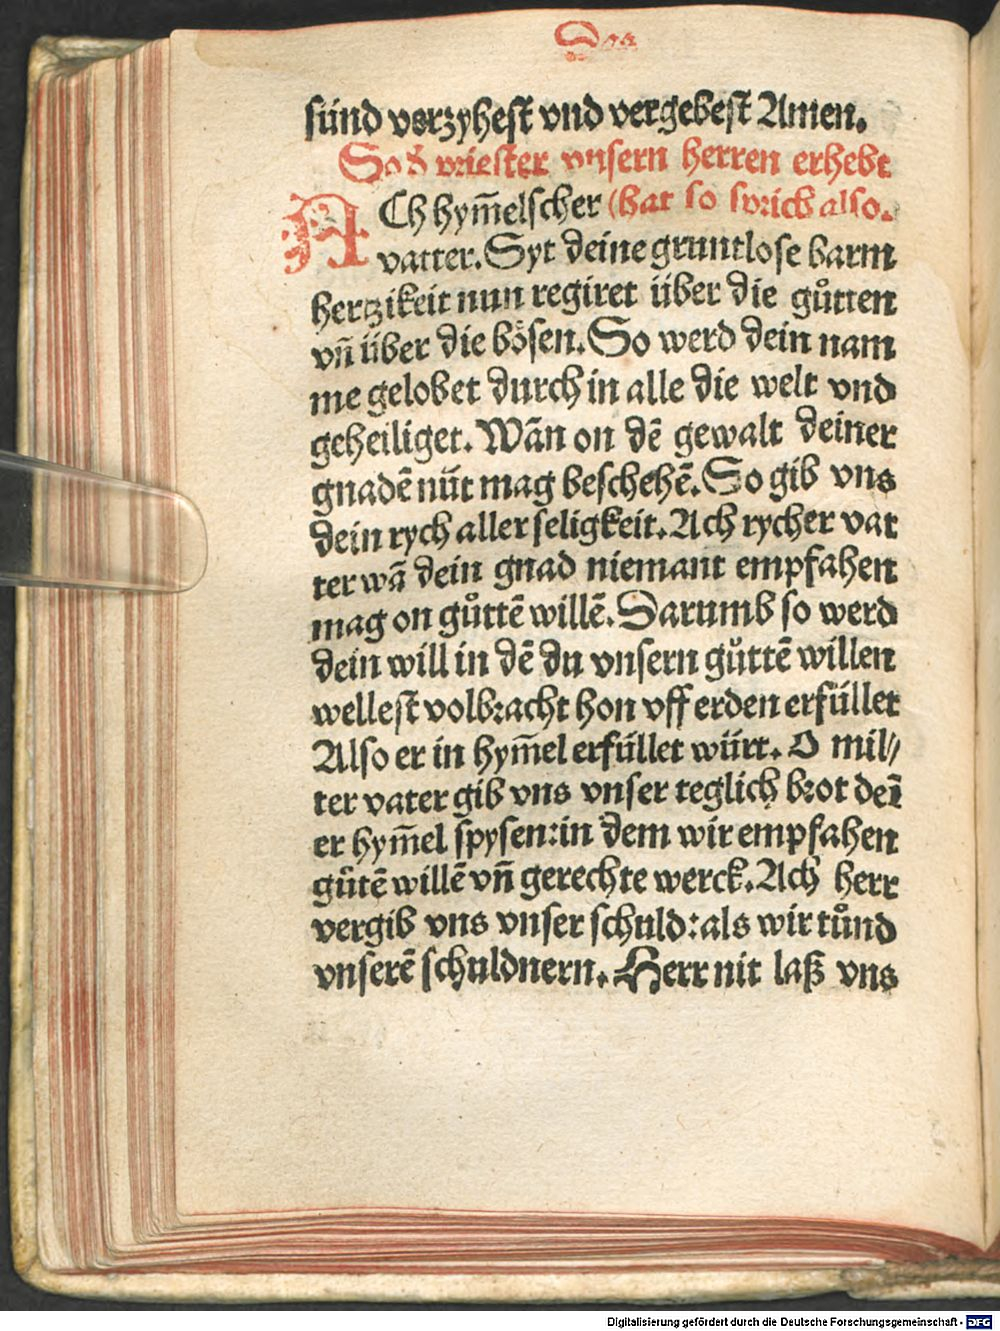 Das
sünd verzyhest vnd vergebest Amen.
So d̕ priester vnsern herren erhebt
ACh hym̄elscher (hat so sprich also.
vatter. Syt deine gruntlose barm
hertzikeit nun regiret über die gůtten
vn̄ über die bösen. So werd dein nam
me gelobet durch in alle die welt vnd
geheiliget. Wān on dē gewalt deiner
gnadē nüt mag beschehē. So gib vns
dein rych aller seligkeit. Ach rycher vat
ter wā dein gnad niemant empfahen
mag on gůttē willē. Darumb so werd
dein will in dē du vnsern gůttē willen
wellest volbracht hon vff erden erfüllet
Also er in hym̄el erfüllet würt. O mil⸗
ter vater gib vns vnser teglich brot deī
er hym̄el spysen: in dem wir empfahen
gůtē willē vn̄ gerechte werck. Ach herr
vergib vns vnser schuld: als wir tůnd
vnserē schuldnern. Herr nit laß vns
Digitalisierung gefördert durch die Deutsche Forschungsgemeinschaft - DFG